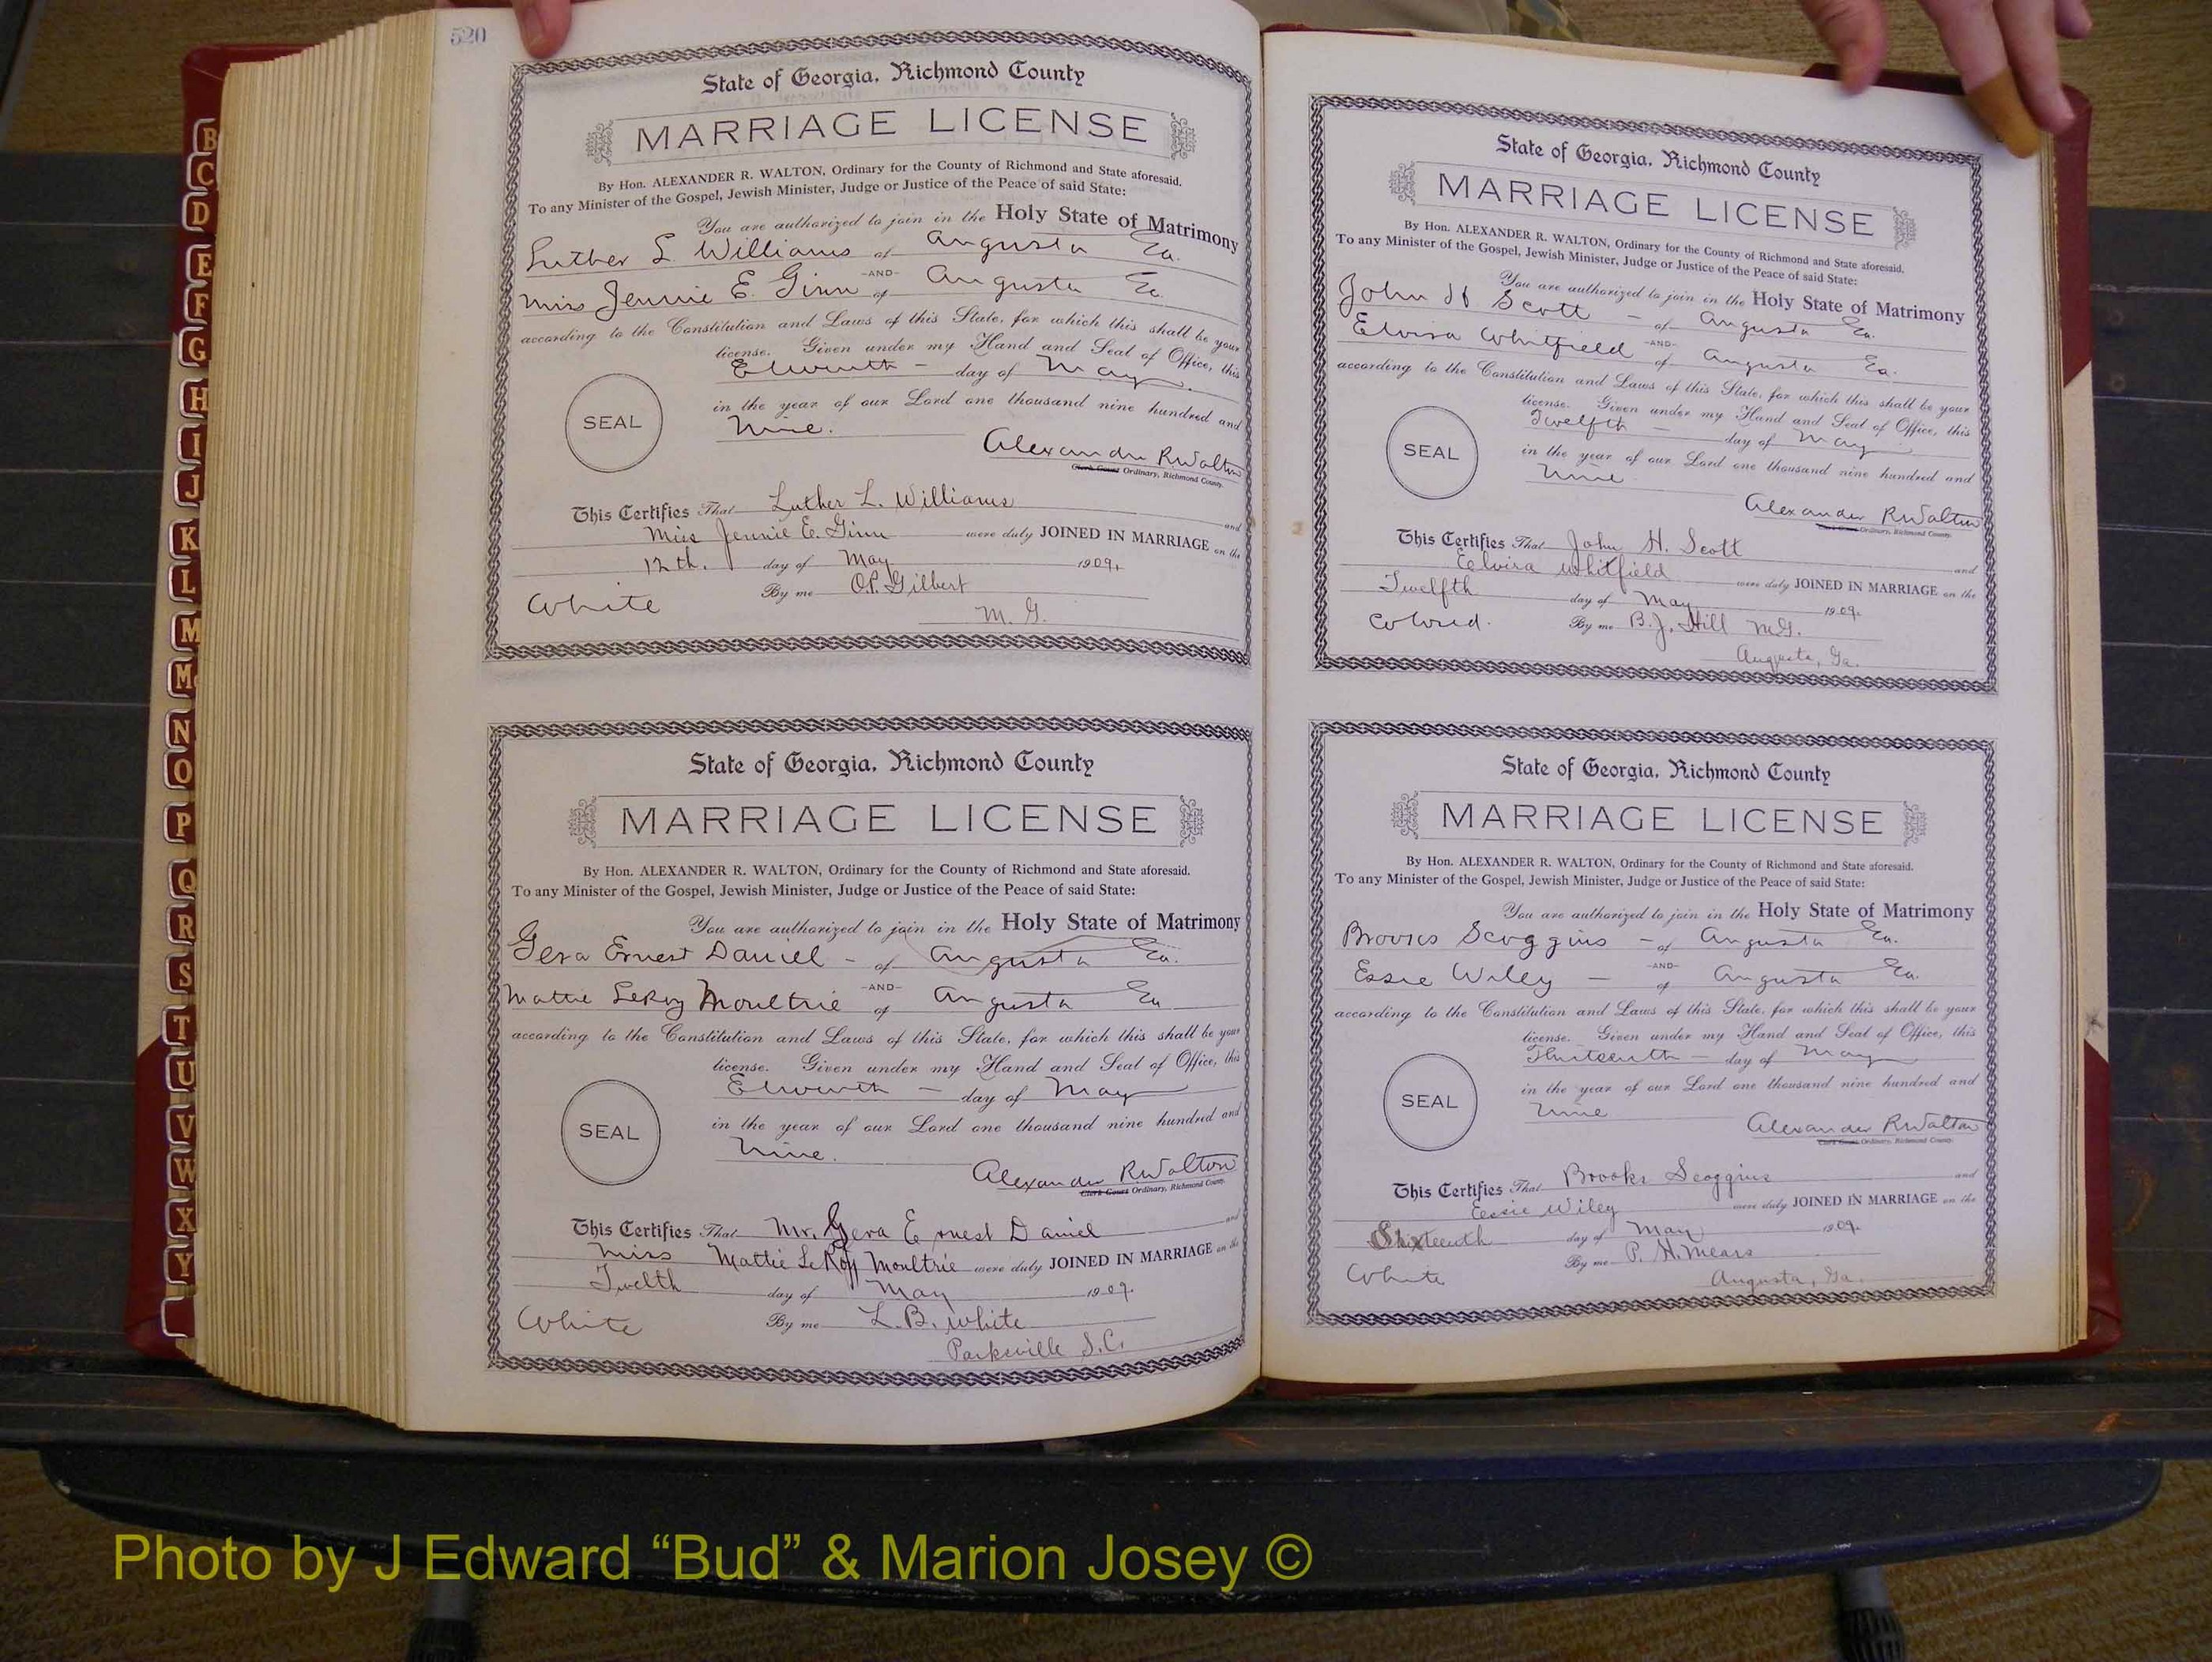 520
State of Georgia, Richmond County
MARRIAGE LICENSE
By Hon. ALEXANDER R. WALTON, Ordinary for the County of Richmond and State aforesaid.
To any Minister of the Gospel, Jewish Minister, Judge or Justice of the Peace of said State:
You are authorized to join in the Holy State of Matrimony
Luther L. Williams of Augusta Ga.
-AND-
Miss Jennie E. Ginn of Augusta Ga.
according to the Constitution and Laws of this State, for which this shall be your
license. Given under my Hand and Seal of Office, this
Eleventh - day of May
in the year of our Lord one thousand nine hundred and
SEAL
Nine.
Alexander R Walton
Clerk Court Ordinary, Richmond County.
This Certifies That Luther L. Williams and
Miss Jennie E. Ginn were duly JOINED IN MARRIAGE on the
12th. day of May 1909.
White By me O.P. Gilbert
M. G.
State of Georgia, Richmond County
MARRIAGE LICENSE
By Hon. ALEXANDER R. WALTON, Ordinary for the County of Richmond and State aforesaid.
To any Minister of the Gospel, Jewish Minister, Judge or Justice of the Peace of said State:
You are authorized to join in the Holy State of Matrimony
Gera Ernest Daniel - of Augusta Ga.
-AND-
Mattie LeRoy Moultrie of Augusta Ga
according to the Constitution and Laws of this State, for which this shall be your
license. Given under my Hand and Seal of Office, this
Eleventh - day of May
in the year of our Lord one thousand nine hundred and
SEAL
Nine.
Alexander R Walton
Clerk Court Ordinary, Richmond County.
This Certifies That Mr. Gera Ernest Daniel and
Miss Mattie LeRoy Moultrie were duly JOINED IN MARRIAGE on the
Twelth day of May 1909.
White By me L. B. White
Parksville S.C.
State of Georgia, Richmond County
MARRIAGE LICENSE
By Hon. ALEXANDER R. WALTON, Ordinary for the County of Richmond and State aforesaid.
To any Minister of the Gospel, Jewish Minister, Judge or Justice of the Peace of said State:
You are authorized to join in the Holy State of Matrimony
John H Scott - of Augusta Ga.
-AND-
Elvira Whitfield of Augusta Ga.
according to the Constitution and Laws of this State, for which this shall be your
license. Given under my Hand and Seal of Office, this
Twelfth - day of May
in the year of our Lord one thousand nine hundred and
SEAL
Nine
Alexander R Walton
Clerk Court Ordinary, Richmond County.
This Certifies That John H. Scott and
Elvira Whitfield were duly JOINED IN MARRIAGE on the
Twelfth day of May 1909.
Colored. By me B. J. Hill M.G.
Augusta, Ga.
State of Georgia, Richmond County
MARRIAGE LICENSE
By Hon. ALEXANDER R. WALTON, Ordinary for the County of Richmond and State aforesaid.
To any Minister of the Gospel, Jewish Minister, Judge or Justice of the Peace of said State:
You are authorized to join in the Holy State of Matrimony
Brooks Scoggins - of Augusta Ga.
-AND-
Essie Wiley - of Augusta Ga.
according to the Constitution and Laws of this State, for which this shall be your
license. Given under my Hand and Seal of Office, this
Thirteenth - day of May
in the year of our Lord one thousand nine hundred and
SEAL
Nine
Alexander R Walton
Clerk Court Ordinary, Richmond County.
This Certifies That Brooks Scoggins and
Essie Wiley were duly JOINED IN MARRIAGE on the
Sixteenth day of May 1909.
White By me P. H. Mears
Augusta, Ga.
B
C
D
E
F
G
H
I
J
K
L
M
Mc
N
O
P
Q
R
S
T
U
V
W
X
Y
Photo by J Edward “Bud” & Marion Josey ©